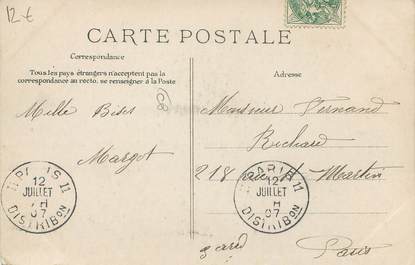 12 €
CARTE POSTALE
Correspondance
Tous les pays étrangers n'acceptent pas la
correspondance au recto. se renseigner à la Poste
Adresse
108
Mille Bises
Margot
Monsieur Fernand
Richard
218 rue St Martin
Paris
PARIS 11
12
JUILLET
07
DISTRIBON
PARIS 11
12
JUILLET
07
DISTRIBON